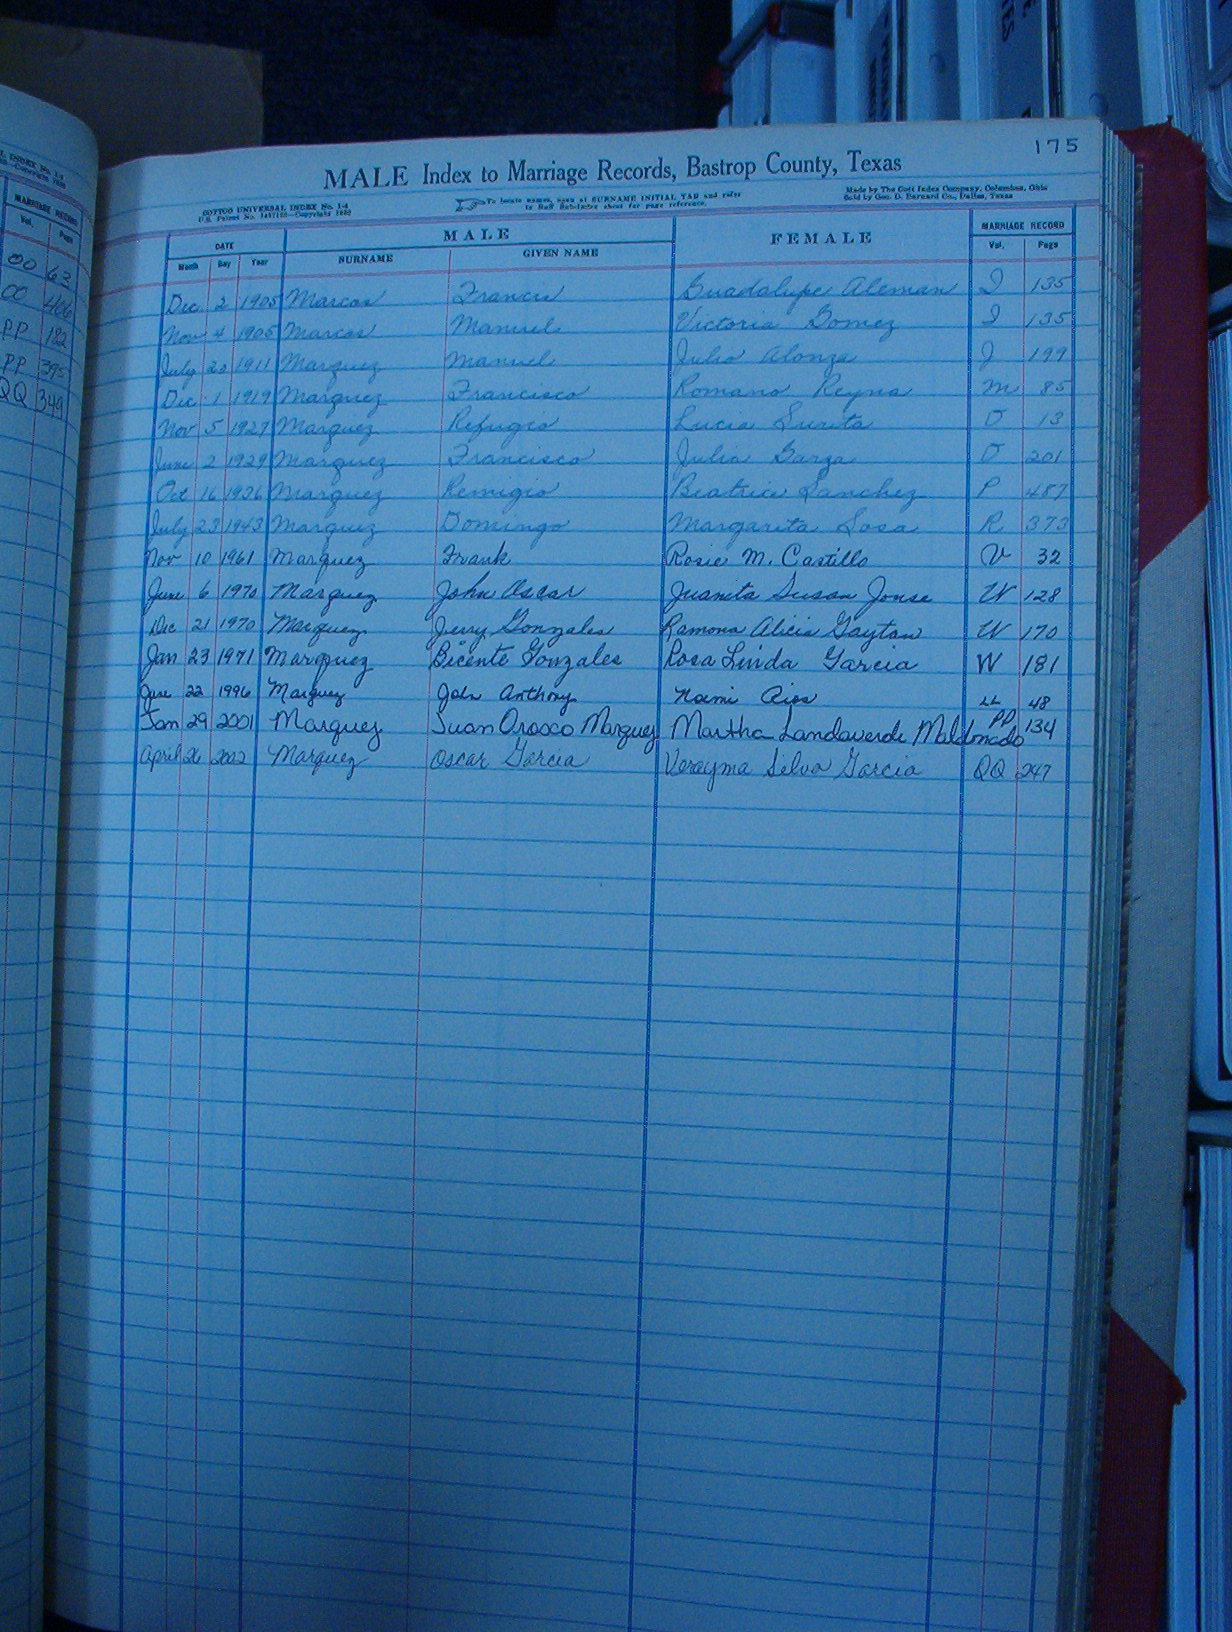 L INDEX No. 1-4
MARRIAGE RECORD
Vol. Page
OO 63
OO 406
PP 182
PP 395
QQ 349
175
MALE Index to Marriage Records, Bastrop County, Texas
COTTCO UNIVERSAL INDEX No. 1-4
U.S. Patent No. Copyright
To locate names, open at SURNAME INITIAL TAB and refer
to Buff Sub-Index sheet for page reference.
Made by The Cott Index Company, Columbus, Ohio
Sold by Geo. D. Barnard Co., Dallas, Texas
DATE MALE FEMALE MARRIAGE RECORD
Month Day Year SURNAME GIVEN NAME Vol. Page
Dec. 2 1905 Marcos Francis Guadalupe Aleman I 135
Nov 4 1905 Marcos Manuel Victoria Gomez I 135
July 20 1911 Marquez Manuel Julio Alonza J 199
Dec 1 1919 Marquez Francisco Romano Reyna M 85
Nov 5 1927 Marquez Refugio Lucia Surita O 13
June 2 1929 Marquez Francisco Julia Garza O 201
Oct 16 1936 Marquez Remigio Beatrice Sanchez P 487
July 23 1943 Marquez Domingo Margarita Sosa R 373
Nov 10 1961 Marquez Frank Rosie M. Castillo V 32
June 6 1970 Marquez John Oscar Juanita Susan Jonse W 128
Dec 21 1970 Marquez Jerry Gonzales Ramona Alicia Gaytan W 170
Jan 23 1971 Marquez Bicente Gonzales Rosa Linda Garcia W 181
June 22 1996 Marquez John Anthony Nami Aios LL 48
Jan 29 2001 Marquez Juan Orosco Marquez Martha Landaverde Maldonado PP 134
April 26 2002 Marquez Oscar Garcia Verayma Selva Garcia QQ 247